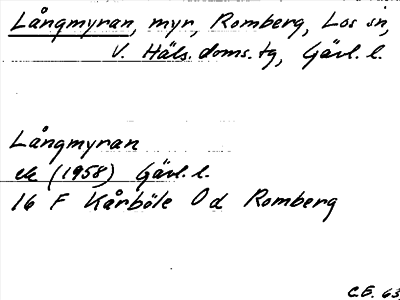 Långmyran, myr, Romberg, Los sn,
V. Häls. doms. tg, Gävl. l.
Långmyran
ek (1958) Gävl. l.
16 F Kårböle Od Romberg
C.E. 63